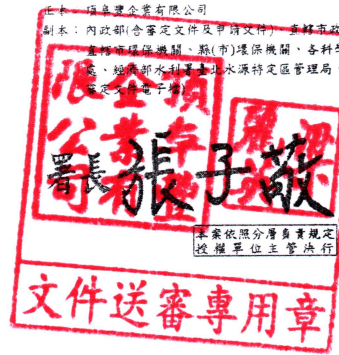 正本：頊阜豐企業有限公司
副本：內政部(含審定文件及申請文件)、直轄市政
直轄市環保機關、縣(市)環保機關、各科學
處、經濟部水利署臺北水源特定區管理局
審定文件電子檔)
署長 張子敬
本案依照分層負責規定
授權單位主管決行
文件送審專用章